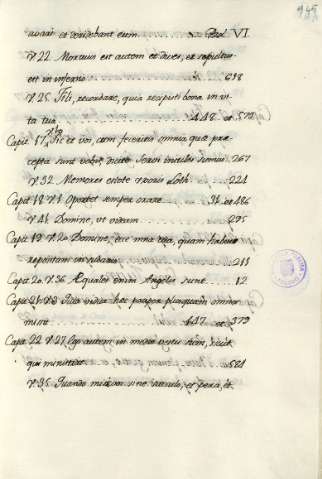 945
avari et deridebant eum. Prol VI
V. 22 Mortuus est autem et dives, et sepultus
est in inferno 618
V. 25 Fili, recordare, quia recepisti bona in vi
ta tua 448 et 572
Capit 17 V. 10 Sic et vos, cum feceritis omnia quæ præ
cepta sunt vobis, dicite: Servi inutiles sumus 267
V. 32 Memores estote uxoris Loth 224
Capit 18 V. 1 Oportet semper orare 31 et 486
V. 41 Domine, ut videam 295
Capit 19 V. 20 Domine, ecce mna tua, quam habui
repositam in sudario 211
Capit 20 V. 36 Æquales enim Angelis sunt 12
Capit 21 V. 3 vidua hæc pauper plusquam omnes
misit 447 et 379
Capit 22 V. 27 Ego autem in medio vestrum sum, sicut
qui ministrat 581
V. 35 Quando misi vos sine sacculo, et pera, et